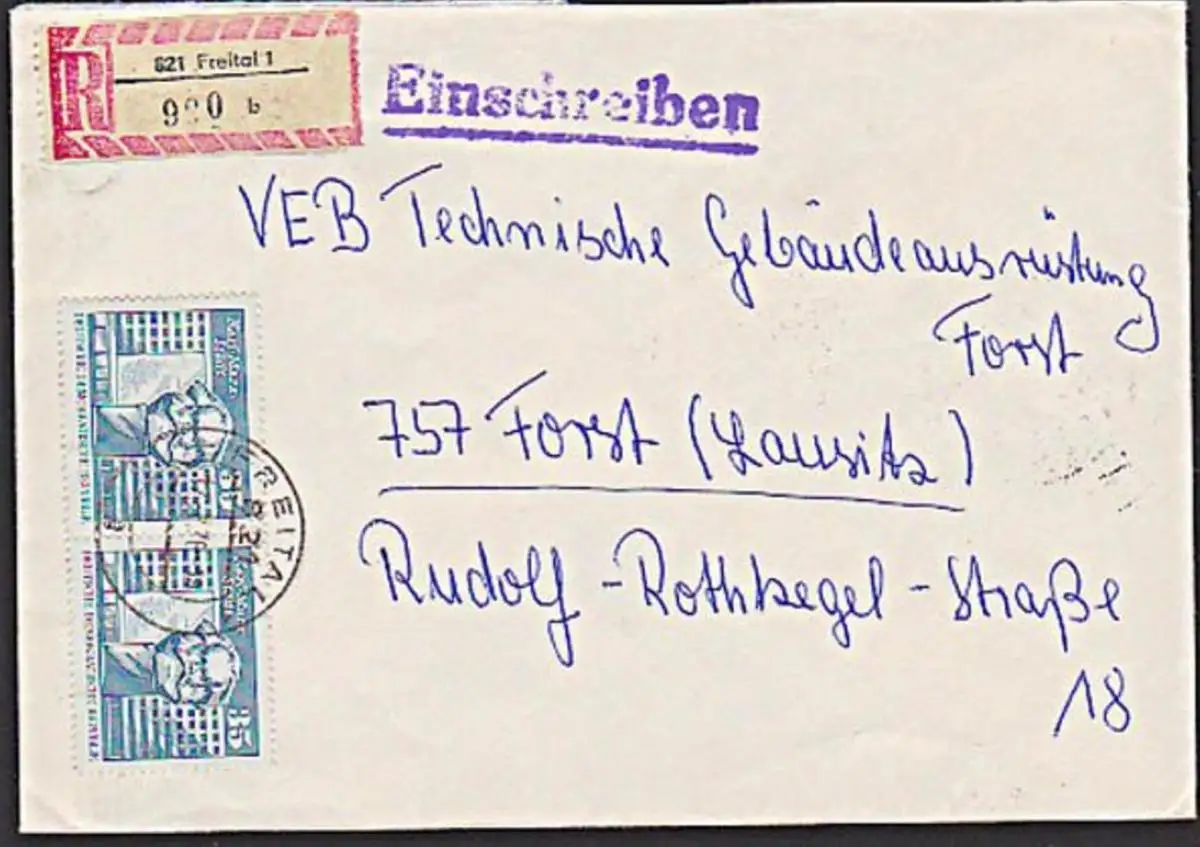 621 Freital 1
b
Einschreiben
VEB Technische Gebäudeausrüstung
Forst
757 Forst (Lausitz)
Rudolf-Rothkegel-Straße
18
FREITAL
821
35